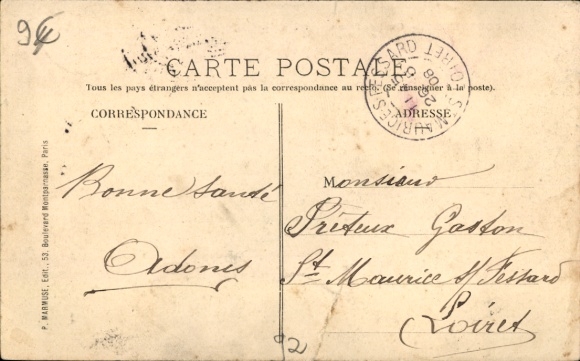 94
CARTE POSTALE
Tous les pays étrangers n'acceptent pas la correspondance au recto. (Se renseigner à la poste).
CORRESPONDANCE
ADRESSE
ST MAURICE S FESSARD
LOIRET
08
Bonne santé
Adonis
Monsieur
Préteux Gaston
St Maurice s/ Fessard
Loiret
P. MARMUSE, Edit., 53, Boulevard Montparnasse, Paris
92